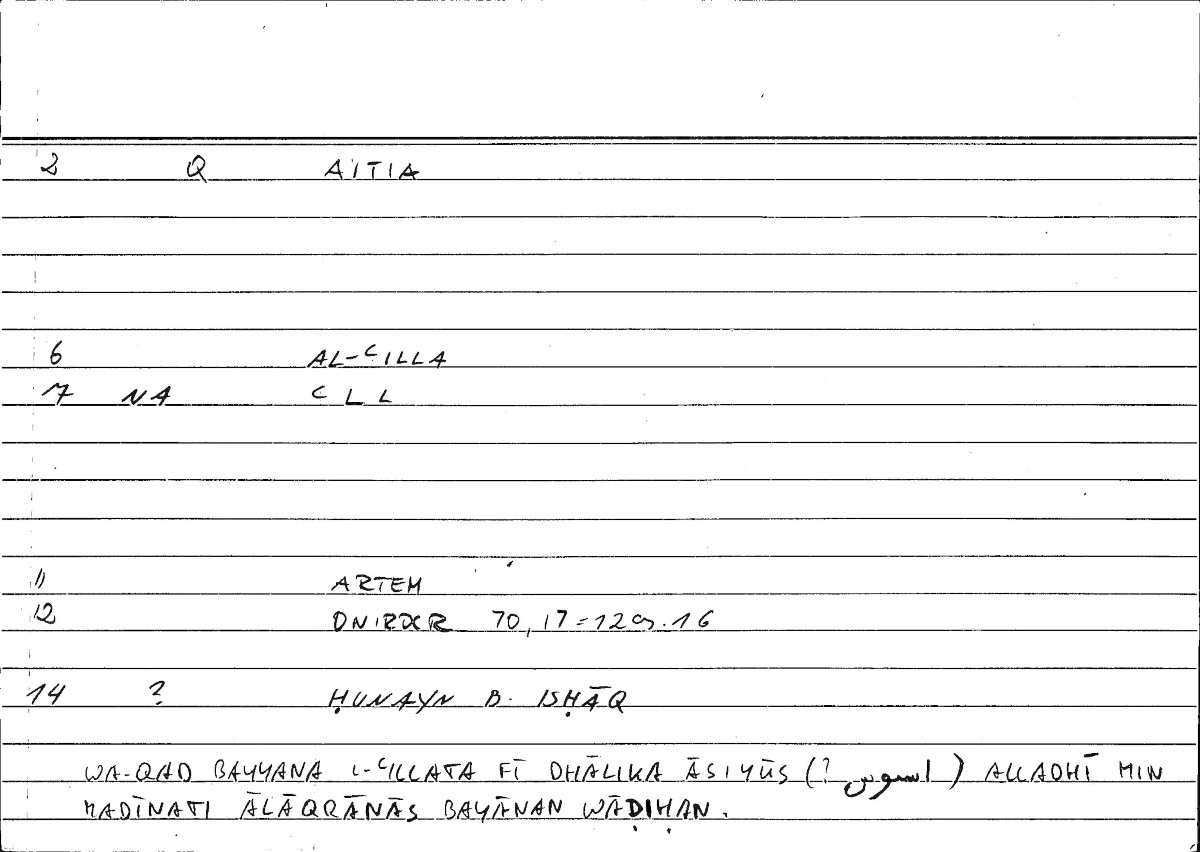 2 Q AITIA
6 AL-ʿILLA
7 NA ʿLL
11 ARTEM
12 ONIROCR 70,17=129.16
14 ? ḤUNAYN B. ISḤĀQ
WA-QAD BAYYANA L-ʿILLATA FĪ DHĀLIKA ĀSIYŪS (? اسوس) ALLADHĪ MIN
MADĪNATI ĀLĀQRĀNĀS BAYĀNAN WĀḌIḤAN.